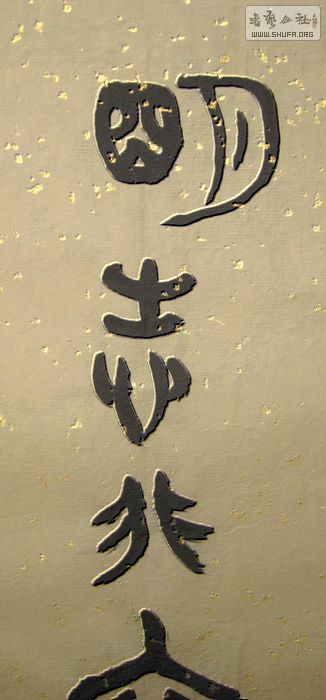 書藝公社
WWW.SHUFA.ORG
明志行